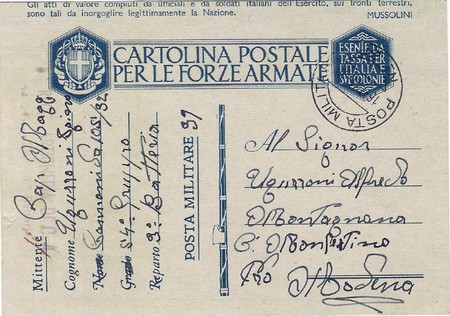 Gli atti di valore compiuti da ufficiali e da soldati italiani dell'Esercito, sui fronti terrestri,
sono tali da inorgoglire legittimamente la Nazione. MUSSOLINI
CARTOLINA POSTALE
PER LE FORZE ARMATE
ESENTE DA
TASSA PER
L'ITALIA E
SUE COLONIE
POSTA MILITARE N
Mittente
Cognome Uguzzoni
Nome
Grado 54° Gruppo
Reparto 3a Batteria
POSTA MILITARE 39
Al Signor
Uguzzoni Alfredo
Montagnana
Pro Modena